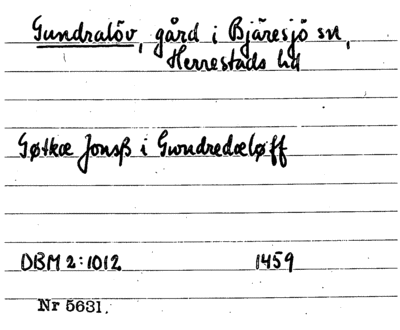 Gundralöv, gård i Bjäresjö sn,
Herrestads hd
Gøtkæ Jonsß i Gwndredæløff
DBM 2:1012 1459
Nr 5631.